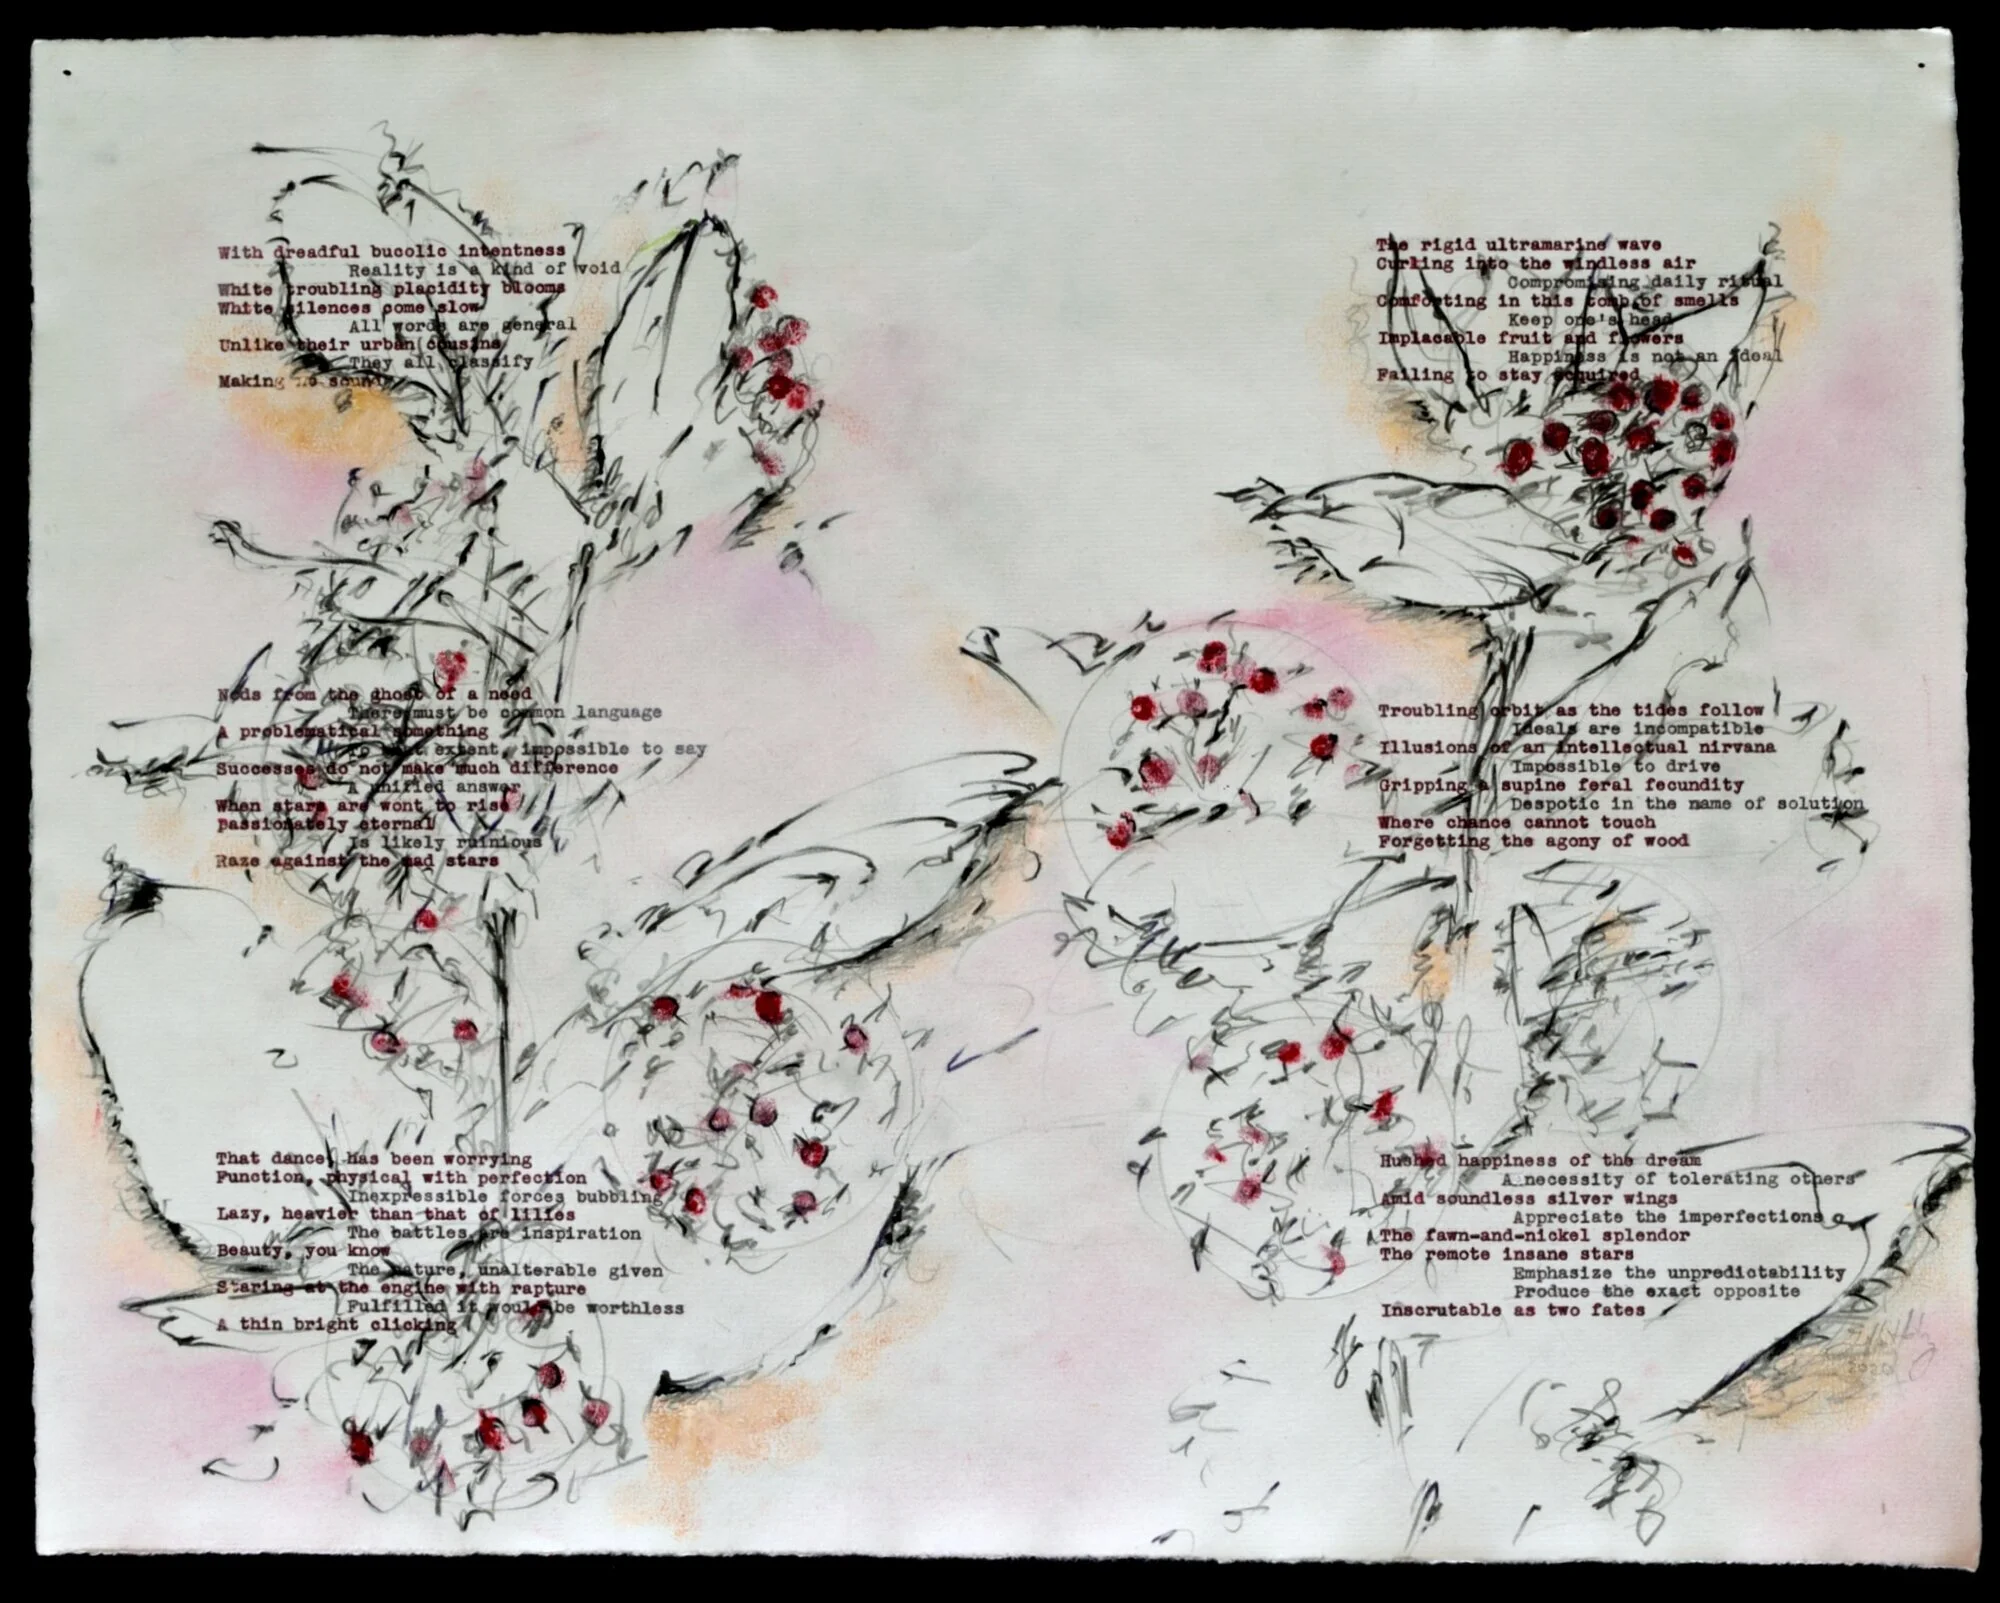 With dreadful bucolic intentness
Reality is a kind of void
White troubling placidity blooms
White silences come slow
All words are general
Unlike their urban cousins
They all classify
Making no sound
Nods from the ghost of a need
There must be common language
A problematical something
To what extent, impossible to say
Successes do not make much difference
A unified answer
When stars are wont to rise
passionately eternal
Is likely ruinious
Raze against the mad stars
That dance, has been worrying
Function, physical with perfection
Inexpressible forces bubbling
Lazy, heavier than that of lilies
The battles are inspiration
Beauty, you know
The nature, unalterable given
Staring at the engine with rapture
Fulfilled it would be worthless
A thin bright clicking
The rigid ultramarine wave
Curling into the windless air
Compromising daily ritual
Comforting in this tomb of smells
Keep one's head
Implacable fruit and flowers
Happiness is not an ideal
Failing to stay acquired
Troubling orbit as the tides follow
Ideals are incompatible
Illusions of an intellectual nirvana
Impossible to drive
Gripping a supine feral fecundity
Despotic in the name of solution
Where chance cannot touch
Forgetting the agony of wood
Hushed happiness of the dream
A necessity of tolerating others
Amid soundless silver wings
Appreciate the imperfections
The fawn-and-nickel splendor
The remote insane stars
Emphasize the unpredictability
Produce the exact opposite
Inscrutable as two fates
2020